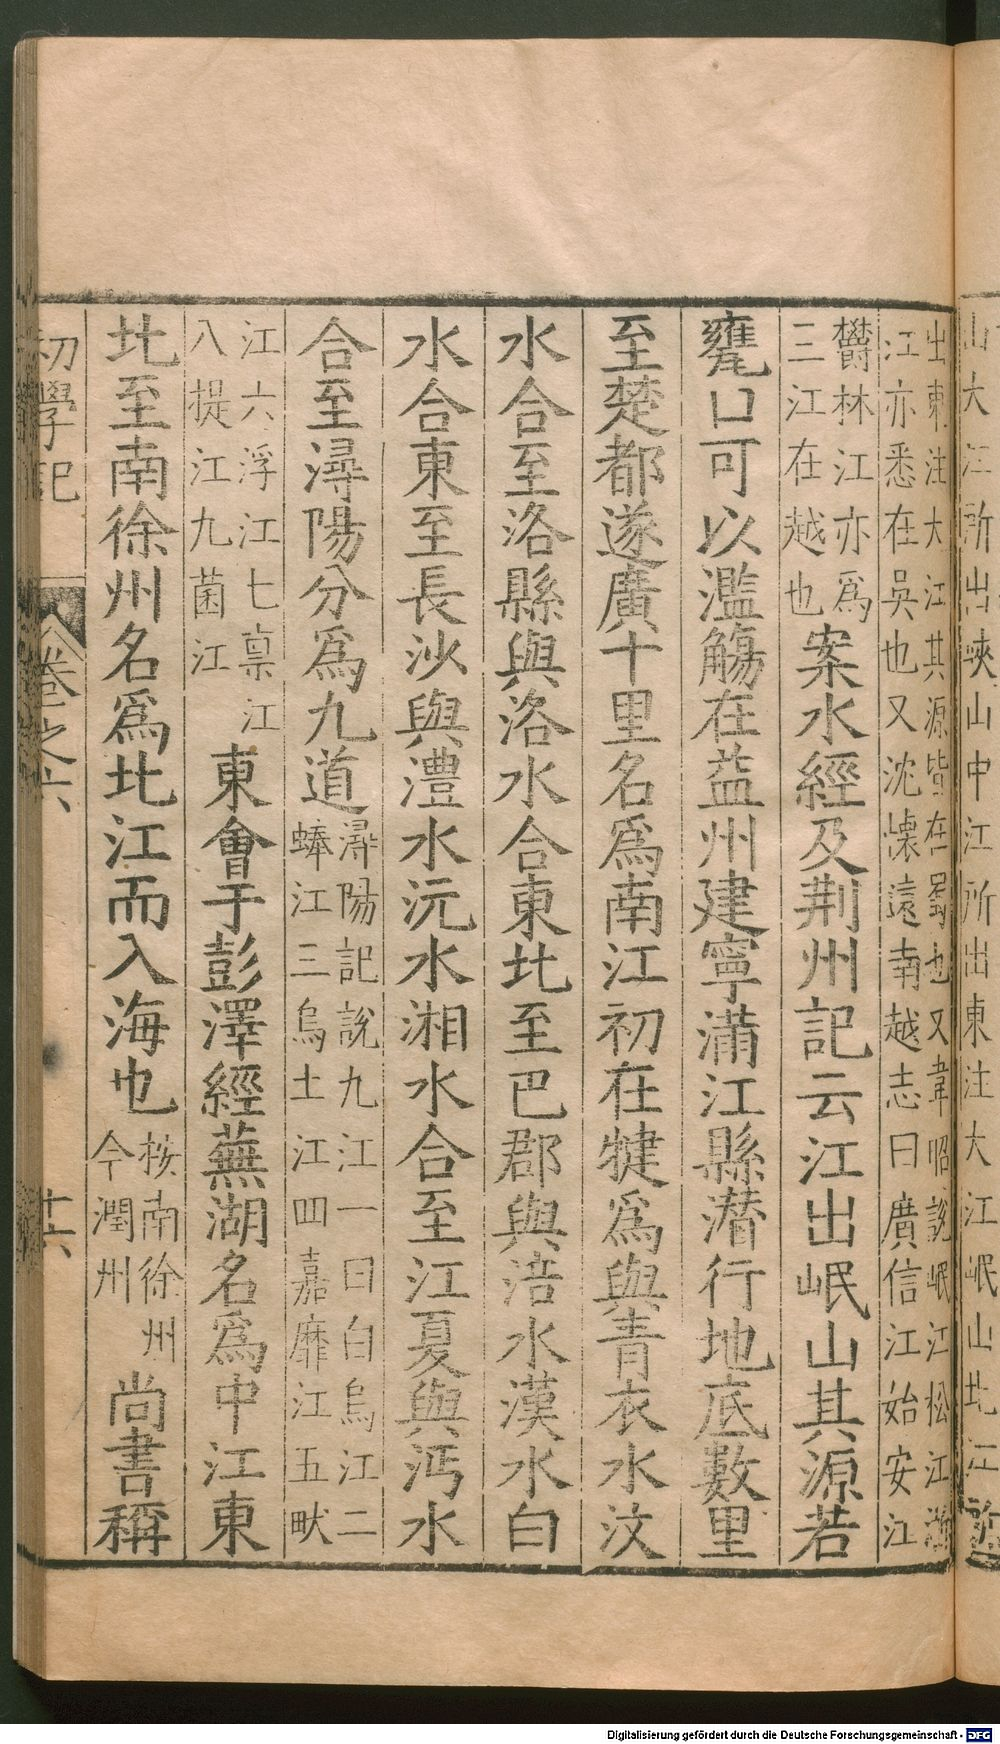 山大江所出峽山中江所出東注大江岷山北江所
出東注大江其源皆在蜀也又韋昭說岷江松江浙
江亦悉在吳也又沈懷遠南越志曰廣信江始安江
欝林江亦爲
三江在越也
案水經及荆州記云江出岷山其源若
甕口可以濫觴在益州建寧滿江縣潜行地底數里
至楚都遂廣十里名爲南江初在犍爲與青衣水汶
水合至洛縣與洛水合東北至巴郡與涪水漢水白
水合東至長沙與澧水沅水湘水合至江夏與沔水
合至潯陽分爲九道
潯陽記說九江一曰白烏江二
蜯江三烏土江四嘉靡江五畎
江六浮江七禀江
八提江九菌江
東會于彭澤經蕪湖名爲中江東
北至南徐州名爲北江而入海也
桉南徐州
今潤州
尚書稱
初學記
卷之六
十六
Digitalisierung gefördert durch die Deutsche Forschungsgemeinschaft - DFG